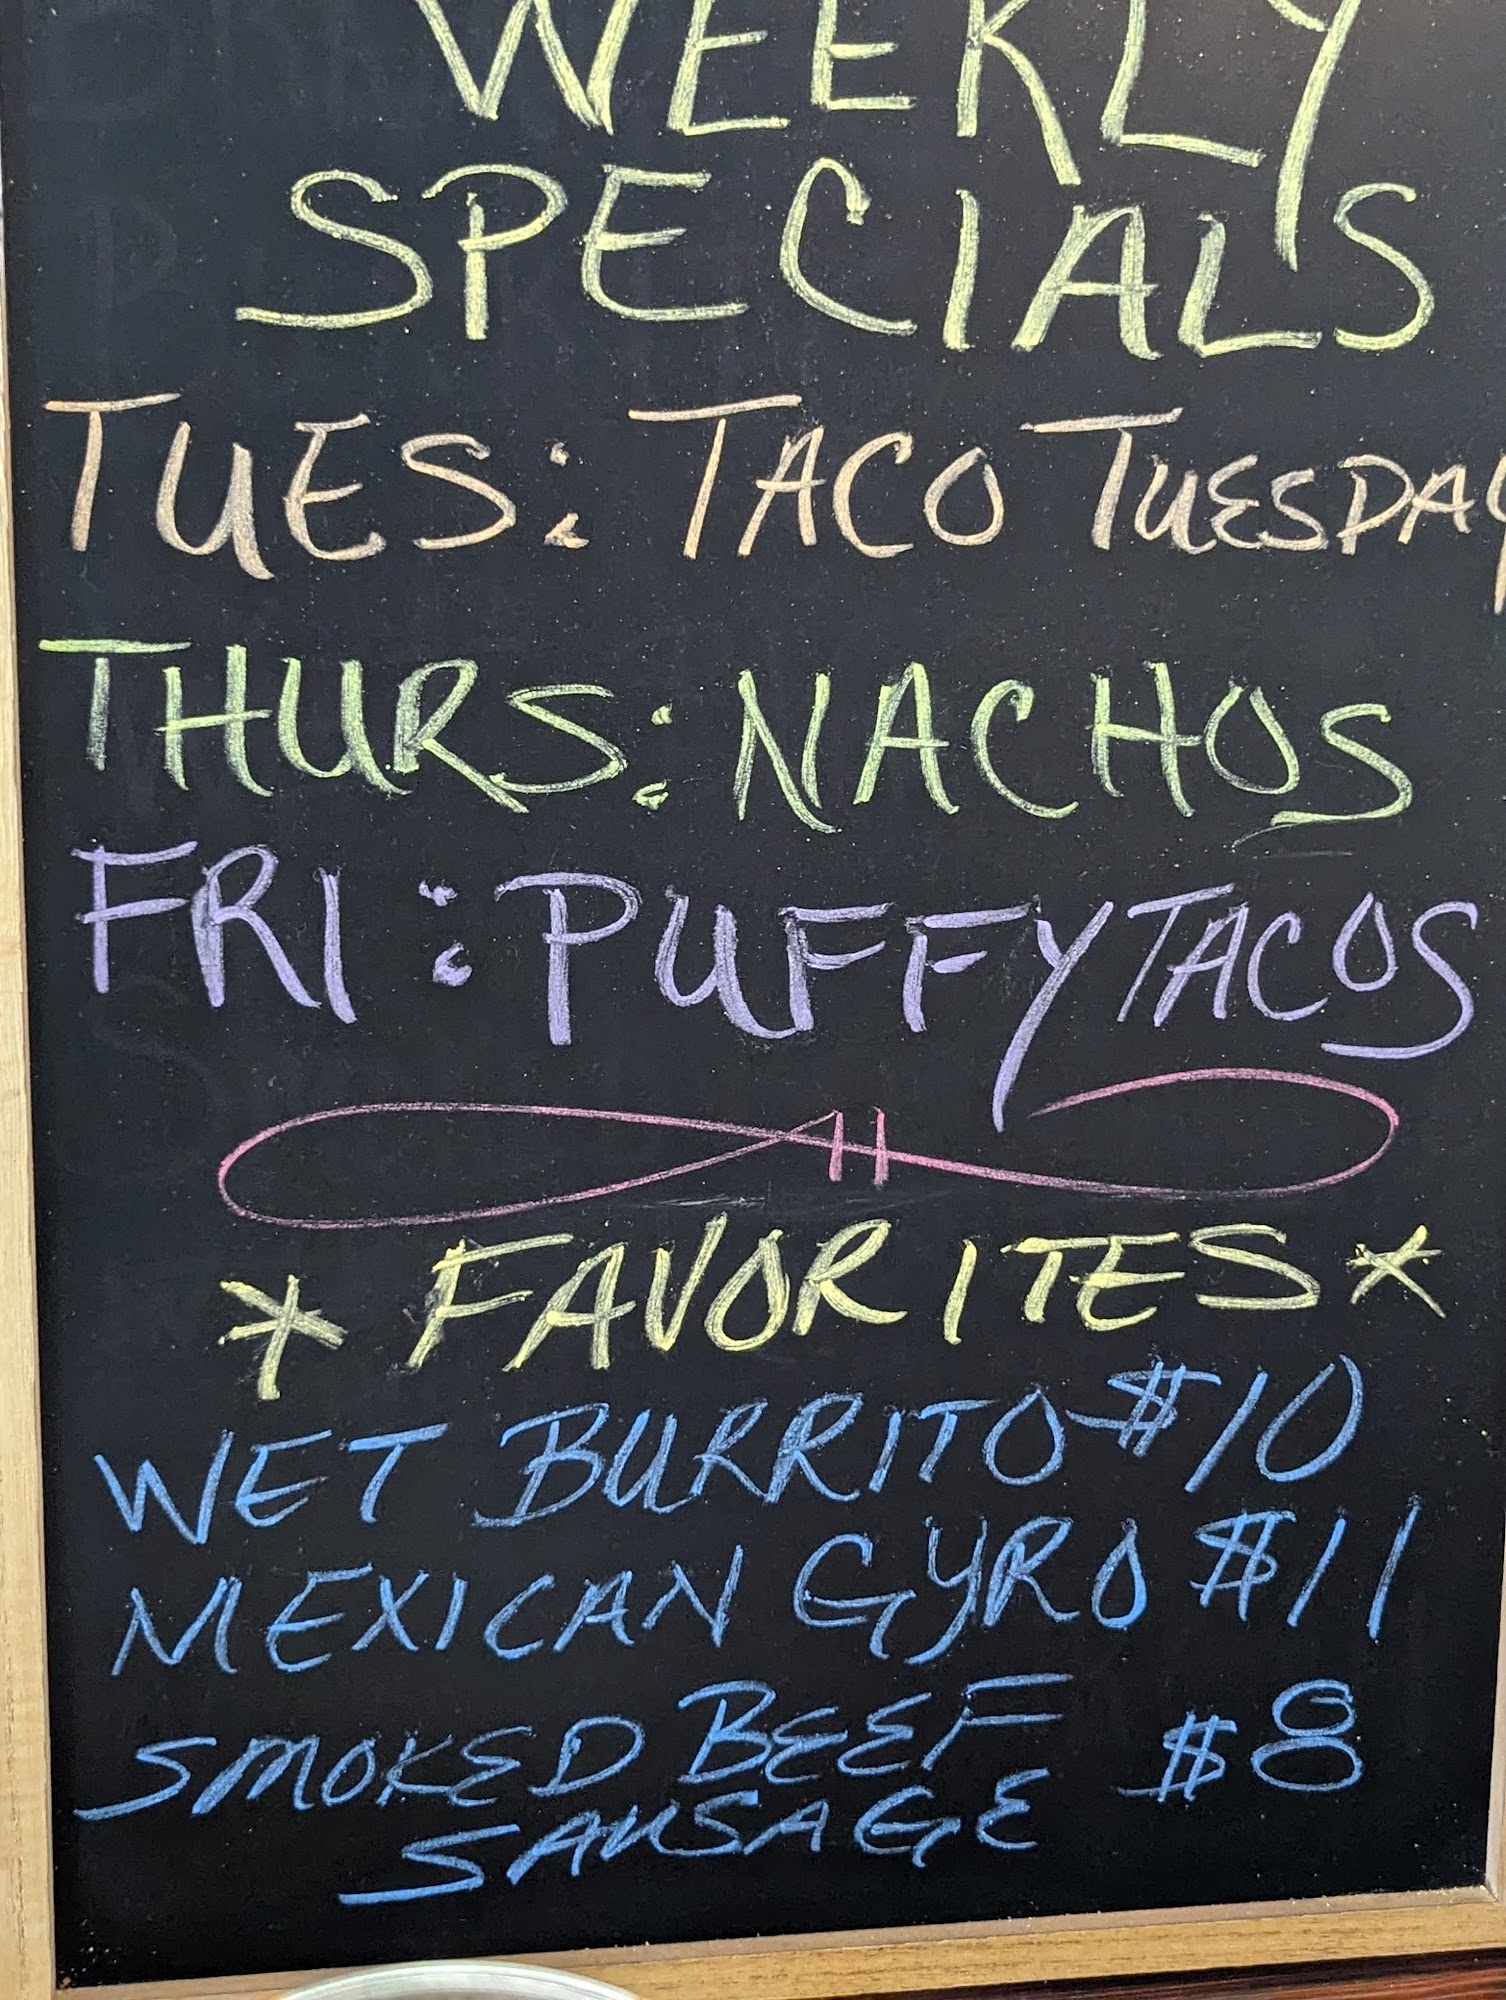 WEEKLY
SPECIALS
TUES: TACO TUESDAY
THURS: NACHOS
FRI: PUFFY TACOS
* FAVORITES *
WET BURRITO $10
MEXICAN GYRO $11
SMOKED BEEF $8
SAUSAGE